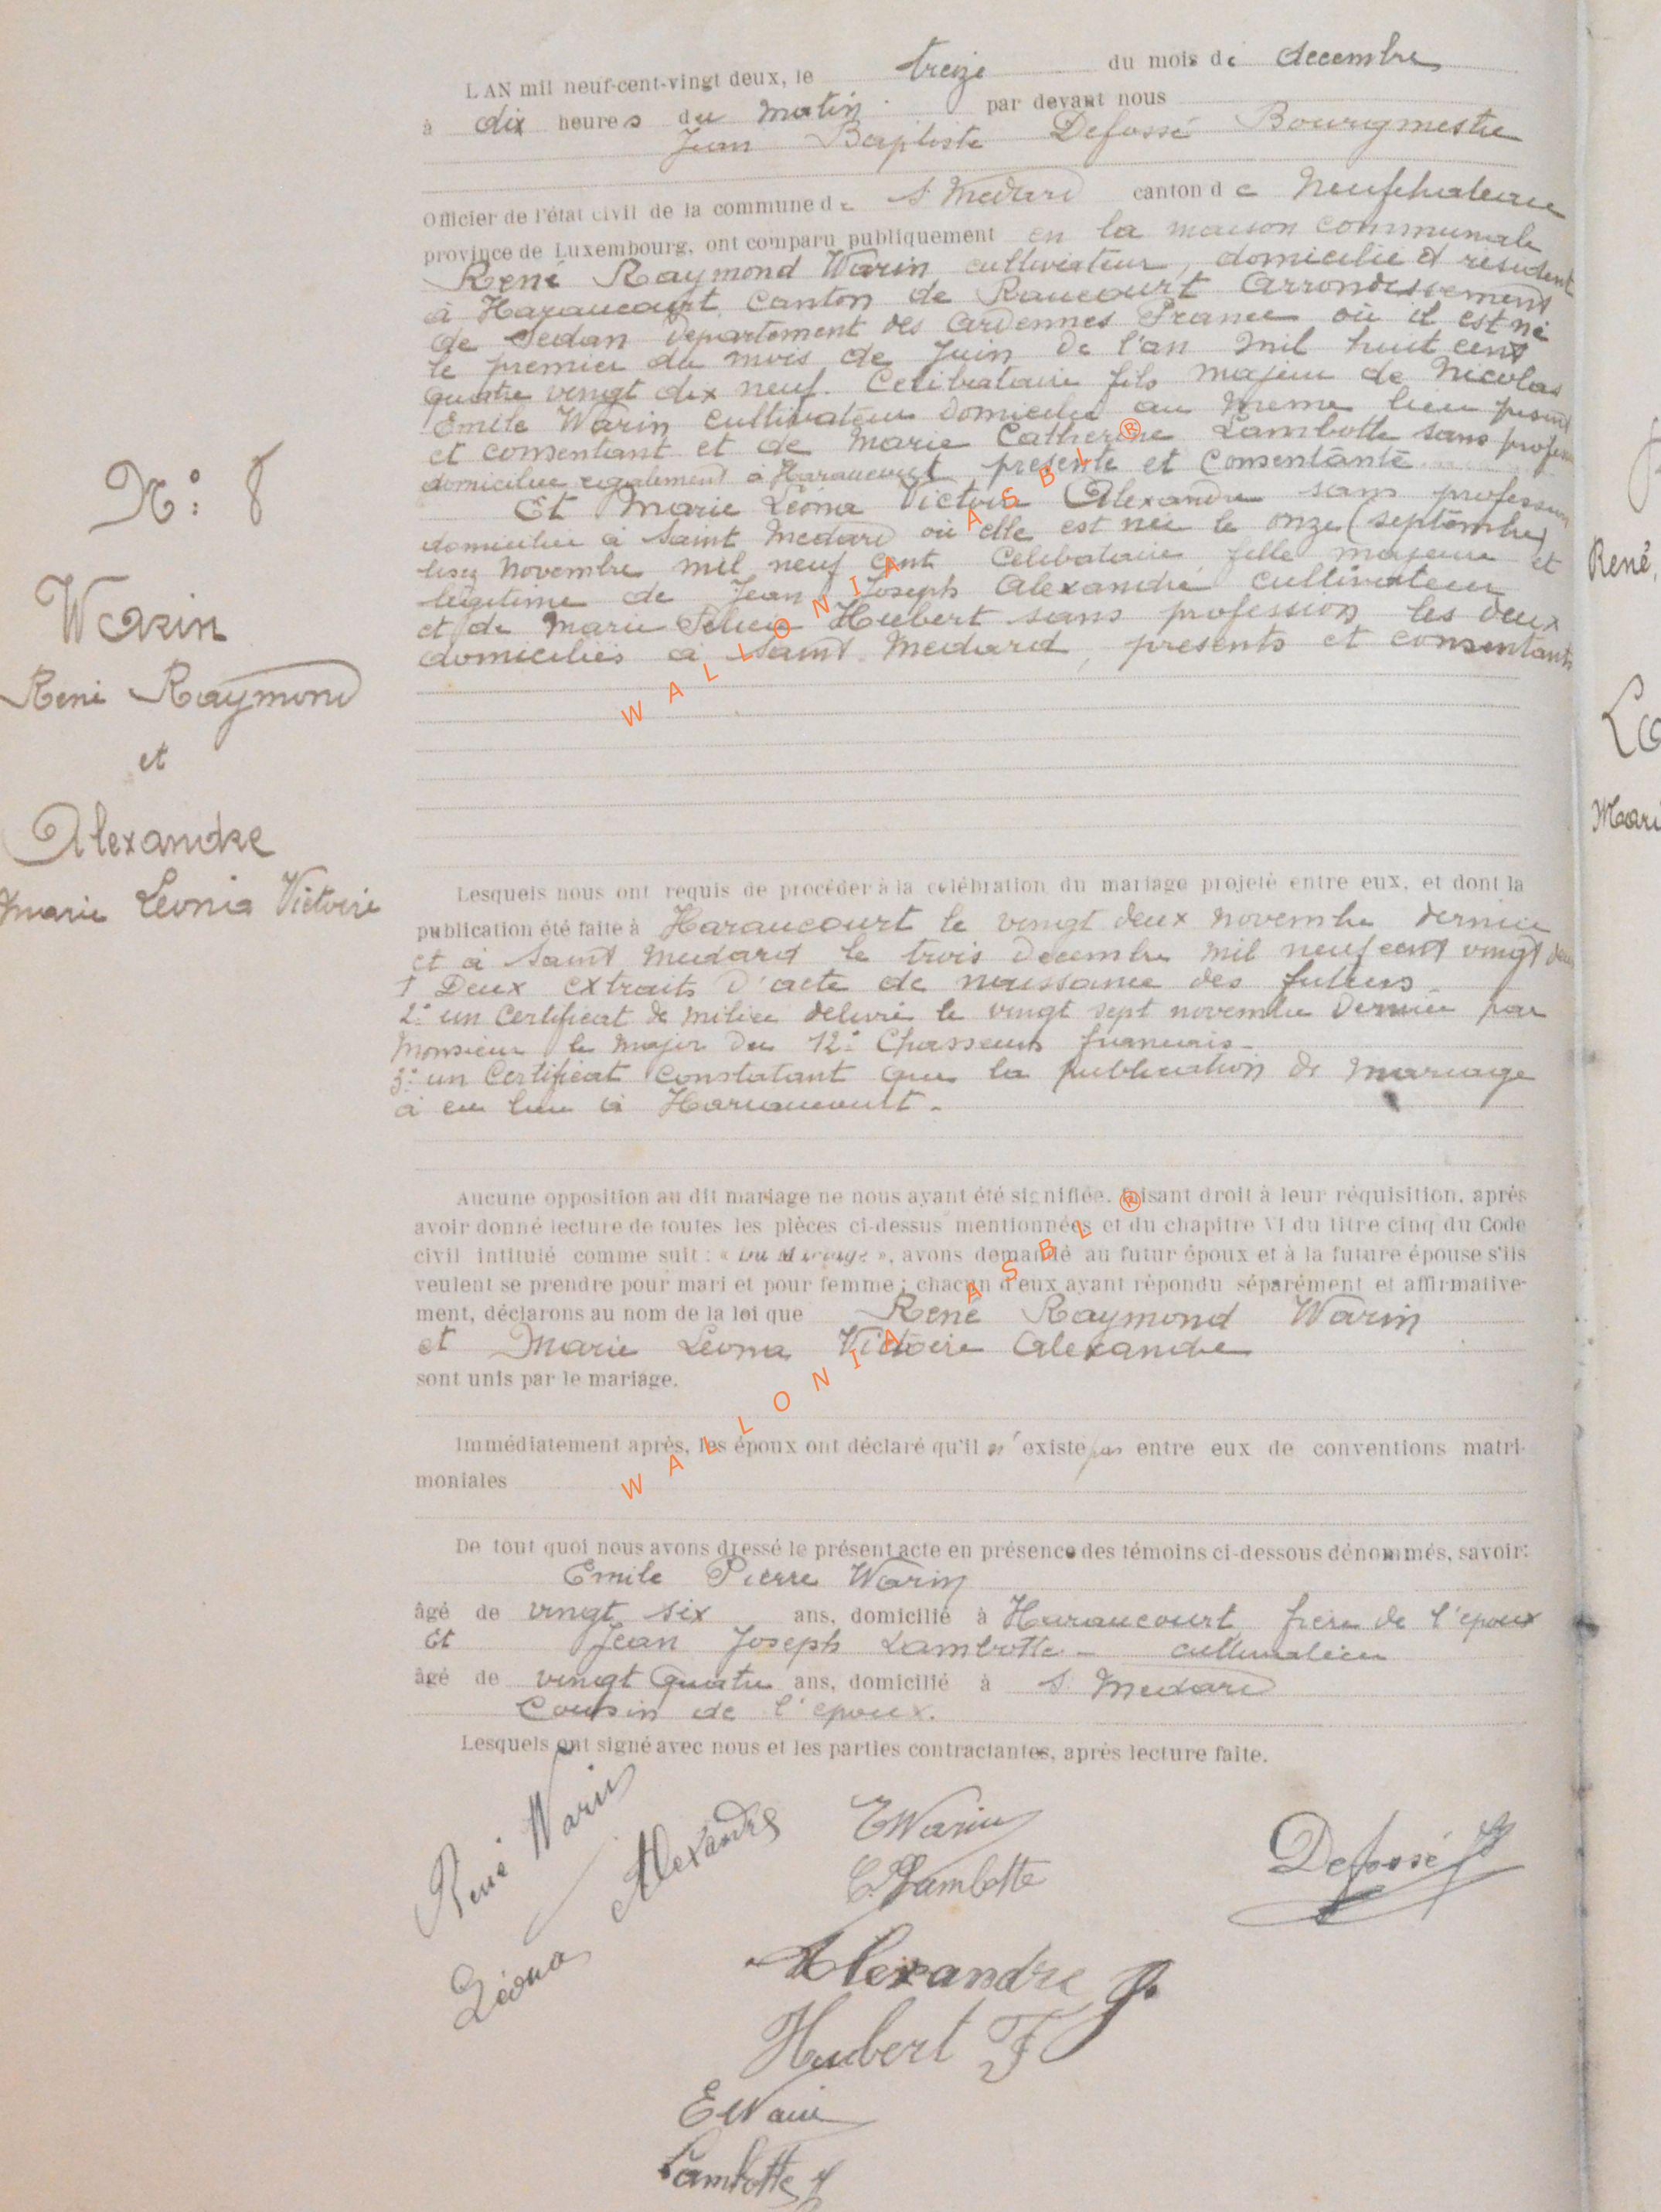 N°: 8
Warin
René Raymond
et
Alexandre
Marie Leonia Victoire
L'AN mil neuf-cent-vingt deux, le treize du mois de decembre
à dix heures du matin par devant nous
Jean Baptiste Defossé Bourgmestre
Officier de l'état civil de la commune de St Medard canton de Neufchateau
province de Luxembourg, ont comparu publiquement en la maison communale
René Raymond Warin cultivateur, domicilié et resident
à Haraucourt canton de Raucourt Arrondissement
de Sedan departement des Ardennes France où il est né
le premier du mois de Juin de l'an mil huit cent
quatre vingt dix neuf. Celibataire fils majeur de Nicolas
Emile Warin cultivateur domicilié au meme lieu present
et consentant et de Marie Catherine Lambotte sans profession
domiciliee egalement à Haraucourt presente et Consentante
Et Marie Léona Victoire Alexandre sans profession
domiciliee à Saint Medard où elle est née le onze (septembre)
lisez Novembre mil neuf cent Celibataire fille majeure et
legitime de Jean Joseph Alexandre cultivateur
et de Marie Felicie Hubert sans profession les deux
domiciliés à Saint Medard, presents et consentants
Lesquels nous ont requis de procéder à la célébration du mariage projeté entre eux, et dont la
publication été faite à Haraucourt le vingt deux novembre dernier
et à Saint Medard le trois decembre mil neuf cent vingt deux
1° Deux extraits d'acte de naissance des futurs
2° un Certificat de milice delivré le vingt sept novembre dernier par
Monsieur le Major du 12° Chasseurs francais
3° un Certificat constatant que la publication de mariage
à eu lieu à Haraucourt.
Aucune opposition au dit mariage ne nous ayant été signifiée. faisant droit à leur réquisition, après
avoir donné lecture de toutes les pièces ci-dessus mentionnées et du chapitre VI du titre cinq du Code
civil intitulé comme suit : « Du Mariage », avons demandé au futur époux et à la future épouse s'ils
veulent se prendre pour mari et pour femme ; chacun d'eux ayant répondu séparément et affirmative-
ment, déclarons au nom de la loi que René Raymond Warin
et Marie Léona Victoire Alexandre
sont unis par le mariage.
Immédiatement après, les époux ont déclaré qu'il n'existe pas entre eux de conventions matri-
moniales
De tout quoi nous avons dressé le présent acte en présence des témoins ci-dessous dénommés, savoir:
Emile Pierre Warin
âgé de vingt six ans, domicilié à Haraucourt frère de l'epoux
Et Jean Joseph Lambotte - cultivateur
âgé de vingt quatre ans, domicilié à St Medard
Cousin de l'epoux.
Lesquels ont signé avec nous et les parties contractantes, après lecture faite.
René Warin
Léona Alexandre
E Warin
C. Lambotte
Defossé
Alexandre J.
Hubert F
E Warin
Lambotte J
René,
Mari
WALLONIA ASBL ®
WALLONIA ASBL ®